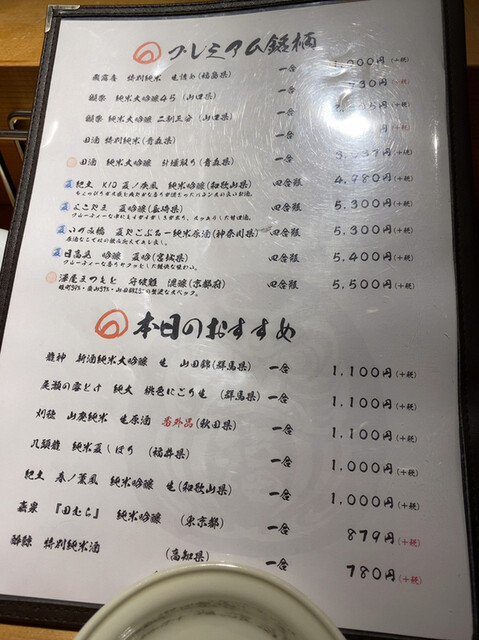 プレミアム銘柄
飛露喜 特別純米 生詰め(福島県) 一合 円(+税)
獺祭 純米大吟醸45(山口県) 一合 円(+税)
獺祭 純米大吟醸 二割三分(山口県) 一合 円(+税)
田酒 特別純米(青森県) 一合 円(+税)
田酒 純米大吟醸 斗壜取り(青森県) 一合 円(+税)
夏 紀土 KID 夏ノ疾風 純米吟醸(和歌山県) 四合瓶 4,980円(+税)
夏 よこやま 夏吟醸(長崎県) 四合瓶 5,300円(+税)
夏 いづみ橋 夏ヤゴブルー純米原酒(神奈川県) 四合瓶 5,300円(+税)
夏 日高見 吟醸 夏吟(宮城県) 四合瓶 5,400円(+税)
澤屋まつもと 守破離 混譲(京都府) 四合瓶 5,500円(+税)
本日のおすすめ
龍神 新酒純米大吟醸 生 山田錦(群馬県) 一合 1,100円(+税)
尾瀬の雪どけ 純大 桃色にごり生 (群馬県) 一合 1,100円(+税)
刈穂 山廃純米 生原酒 番外品(秋田県) 一合 1,100円(+税)
九頭龍 純米夏しぼり (福井県) 一合 1,000円(+税)
紀土 春ノ薫風 純米吟醸 生(和歌山県) 一合 1,000円(+税)
嘉泉 『田むら』 純米吟醸 (東京都) 一合 879円(+税)
酔鯨 特別純米酒 (高知県) 一合 780円(+税)